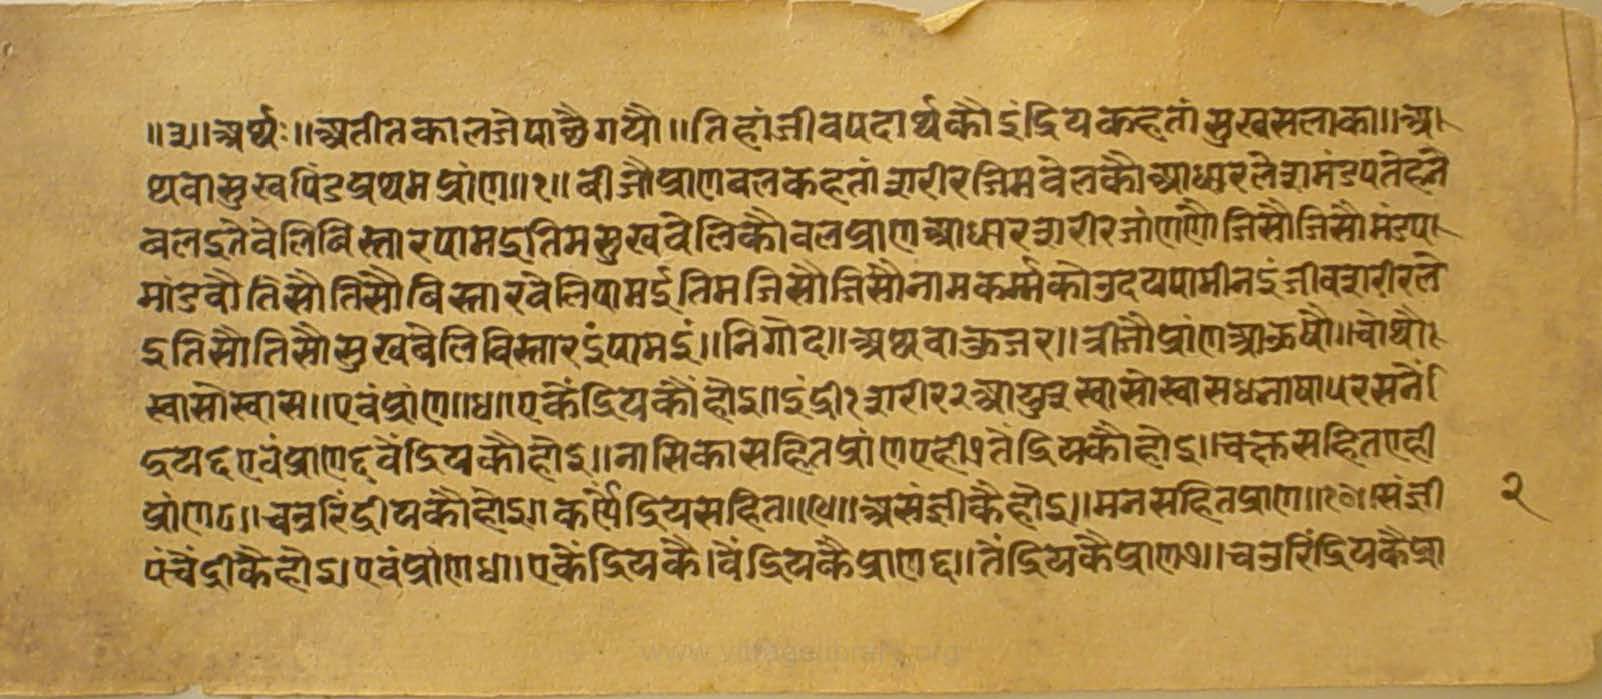 ॥३॥अर्थः॥अतीतकालजेपाछैगयौ॥तिहांजीवपदार्थकौइंद्रियकहतांसुखसलाका॥अ।
थवासुखपिंडप्रथमप्रांण॥१॥बीजौप्राणबलकहतांशरीरजिमवेलकौआधारलेशमंडपतेहनै
बलइतेवेलिबिस्तारपामइतिमसुखवेलिकौबलप्राणआधारशरीरजांणणौजिसौजिसौमंडपा
मांडवौतिसौतिसौबिस्तारवेलिपामईतिमजिसौजिसौनामकर्म्मकोउदयपामीनइंजीवशरीरले
इतिसौतिसौसुखबेलिविस्तारइंपामइं॥निगोद॥अथवाऊजर॥त्रीजौप्रांणआऊषौ॥चौथौ
स्वासोस्वास॥एवंप्रांण॥४॥एकेंद्रियकौंहोइ॥इंद्री१शरीर२आयु३स्वासोस्वास४भाषा५रसनें
द्रय६एवंप्राण६बेंद्रियकौहोइ॥नासिकासहितप्रांणएही७तेंद्रियकौहोइ॥चक्षसहितएही
प्रांण८॥चउरिंद्रीयकौहोइ॥कर्णेंद्रियसहित॥९॥असंज्ञीकैहोइ॥मनसहितप्राण॥१०॥संज्ञी
पंचेंद्रीकैहोइ।एवंप्रांण४॥एकेंद्रियकै।बेंद्रियकैप्राण६॥तेंद्रियकैप्राण७॥चउरिंद्रियकैप्रा
२